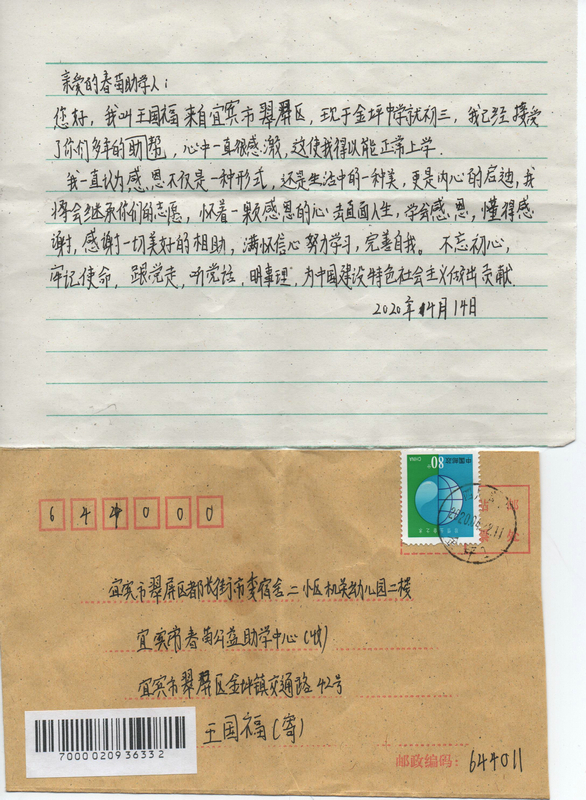 亲爱的春苗助学人：
您好，我叫王国福来自宜宾市翠屏区，现于金坪中学就初三，我已经接受
了你们多年的助帮，心中一直很感激，这使我得以能正常上学.
我一直认为感恩不仅是一种形式，还是生活中的一种美，更是内心的启迪，我
将会继承你们的志愿，怀着一颗感恩的心去直面人生，学会感恩，懂得感
谢，感谢一切美好的相助，满怀信心努力学习，完善自我。不忘初心，
牢记使命，跟党走，听党话，明事理，为中国建设特色社会主义做出贡献.
2020年4月14日
中国邮政
80分
CHINA
644000
宜宾市翠屏区都长街市委宿舍二小区机关幼儿园二楼
宜宾市春苗公益助学中心(收)
宜宾市翠屏区金坪镇交通路42号
王国福(寄)
7000020936332
邮政编码：644011